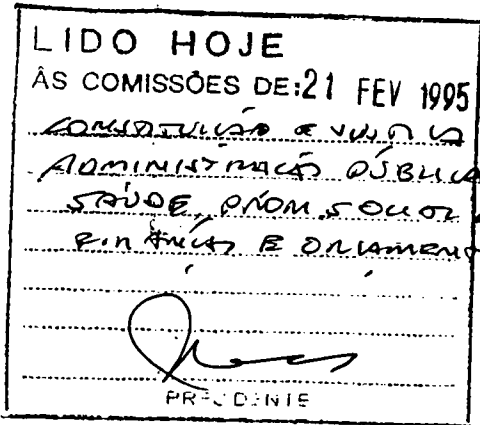 LIDO HOJE
ÀS COMISSÕES DE: 21 FEV 1995
CONSTITUIÇÃO E
ADMINISTRAÇÃO PÚBLICA
SAÚDE, PROM. SOCIAL
FINANÇAS E ORÇAMENTO
PRESIDENTE